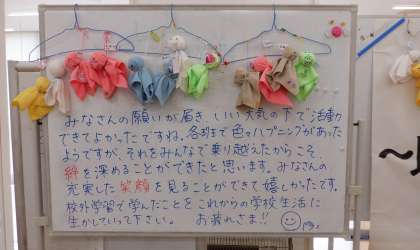 みなさんの願いが届き、いい天気の下で活動
できてよかったですね。各班で色々ハプニングがあった
ようですが、それをみんなで乗り越えたからこそ、
絆を深めることができたと思います。みなさんの
充実した笑顔を見ることができて嬉しかったです。
校外学習で学んだことをこれからの学校生活に
生かしていって下さい。 お疲れさま!!